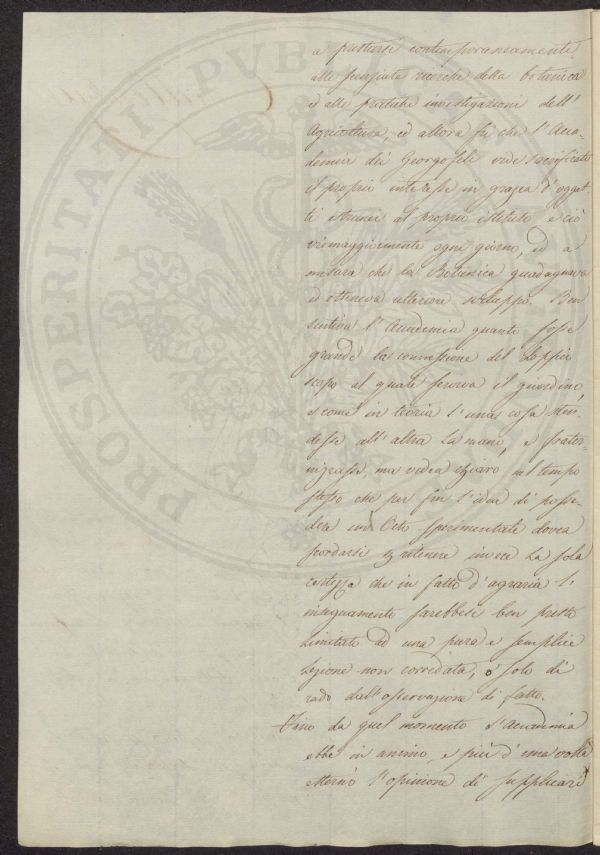 a prestarsi contemporaneamente
alle scenziate ricerche della botanica
ed alle pratiche investigazioni dell'
Agricoltura, ed allora fù che l'Acca-
demia dei Georgofili vide sacrificato
il proprio interesse in grazia d'ogget-
ti estranei al proprio istituto e ciò
viemaggiormente ogni giorno, ed a
misura che la Botanica guadagnava
ed otteneva ulteriore sviluppo. Ben
sentiva l'Accademia quanto fosse
grande la connessione del doppio
scopo al quale serviva il giardino
e come in teoria l'una cosa sten-
desse all'altra la mano, e frater-
nizzasse, ma vedea chiaro nel tempo
stesso che per fin l'idea di posse-
dere un Orto sperimentale dovea
scordarsi e ritenere invece la sola
certezza che in fatto d'agraria l'
insegnamento sarebbesi ben presto
limitato ad una pura e semplice
lezione non corredata, o solo di
rado dall'osservazione di fatto.
Fino da quel momento l'Accademia
ebbe in animo, e più d'una volta
esternò l'opinione di supplicare
PROSPERITATI PUBLICAE